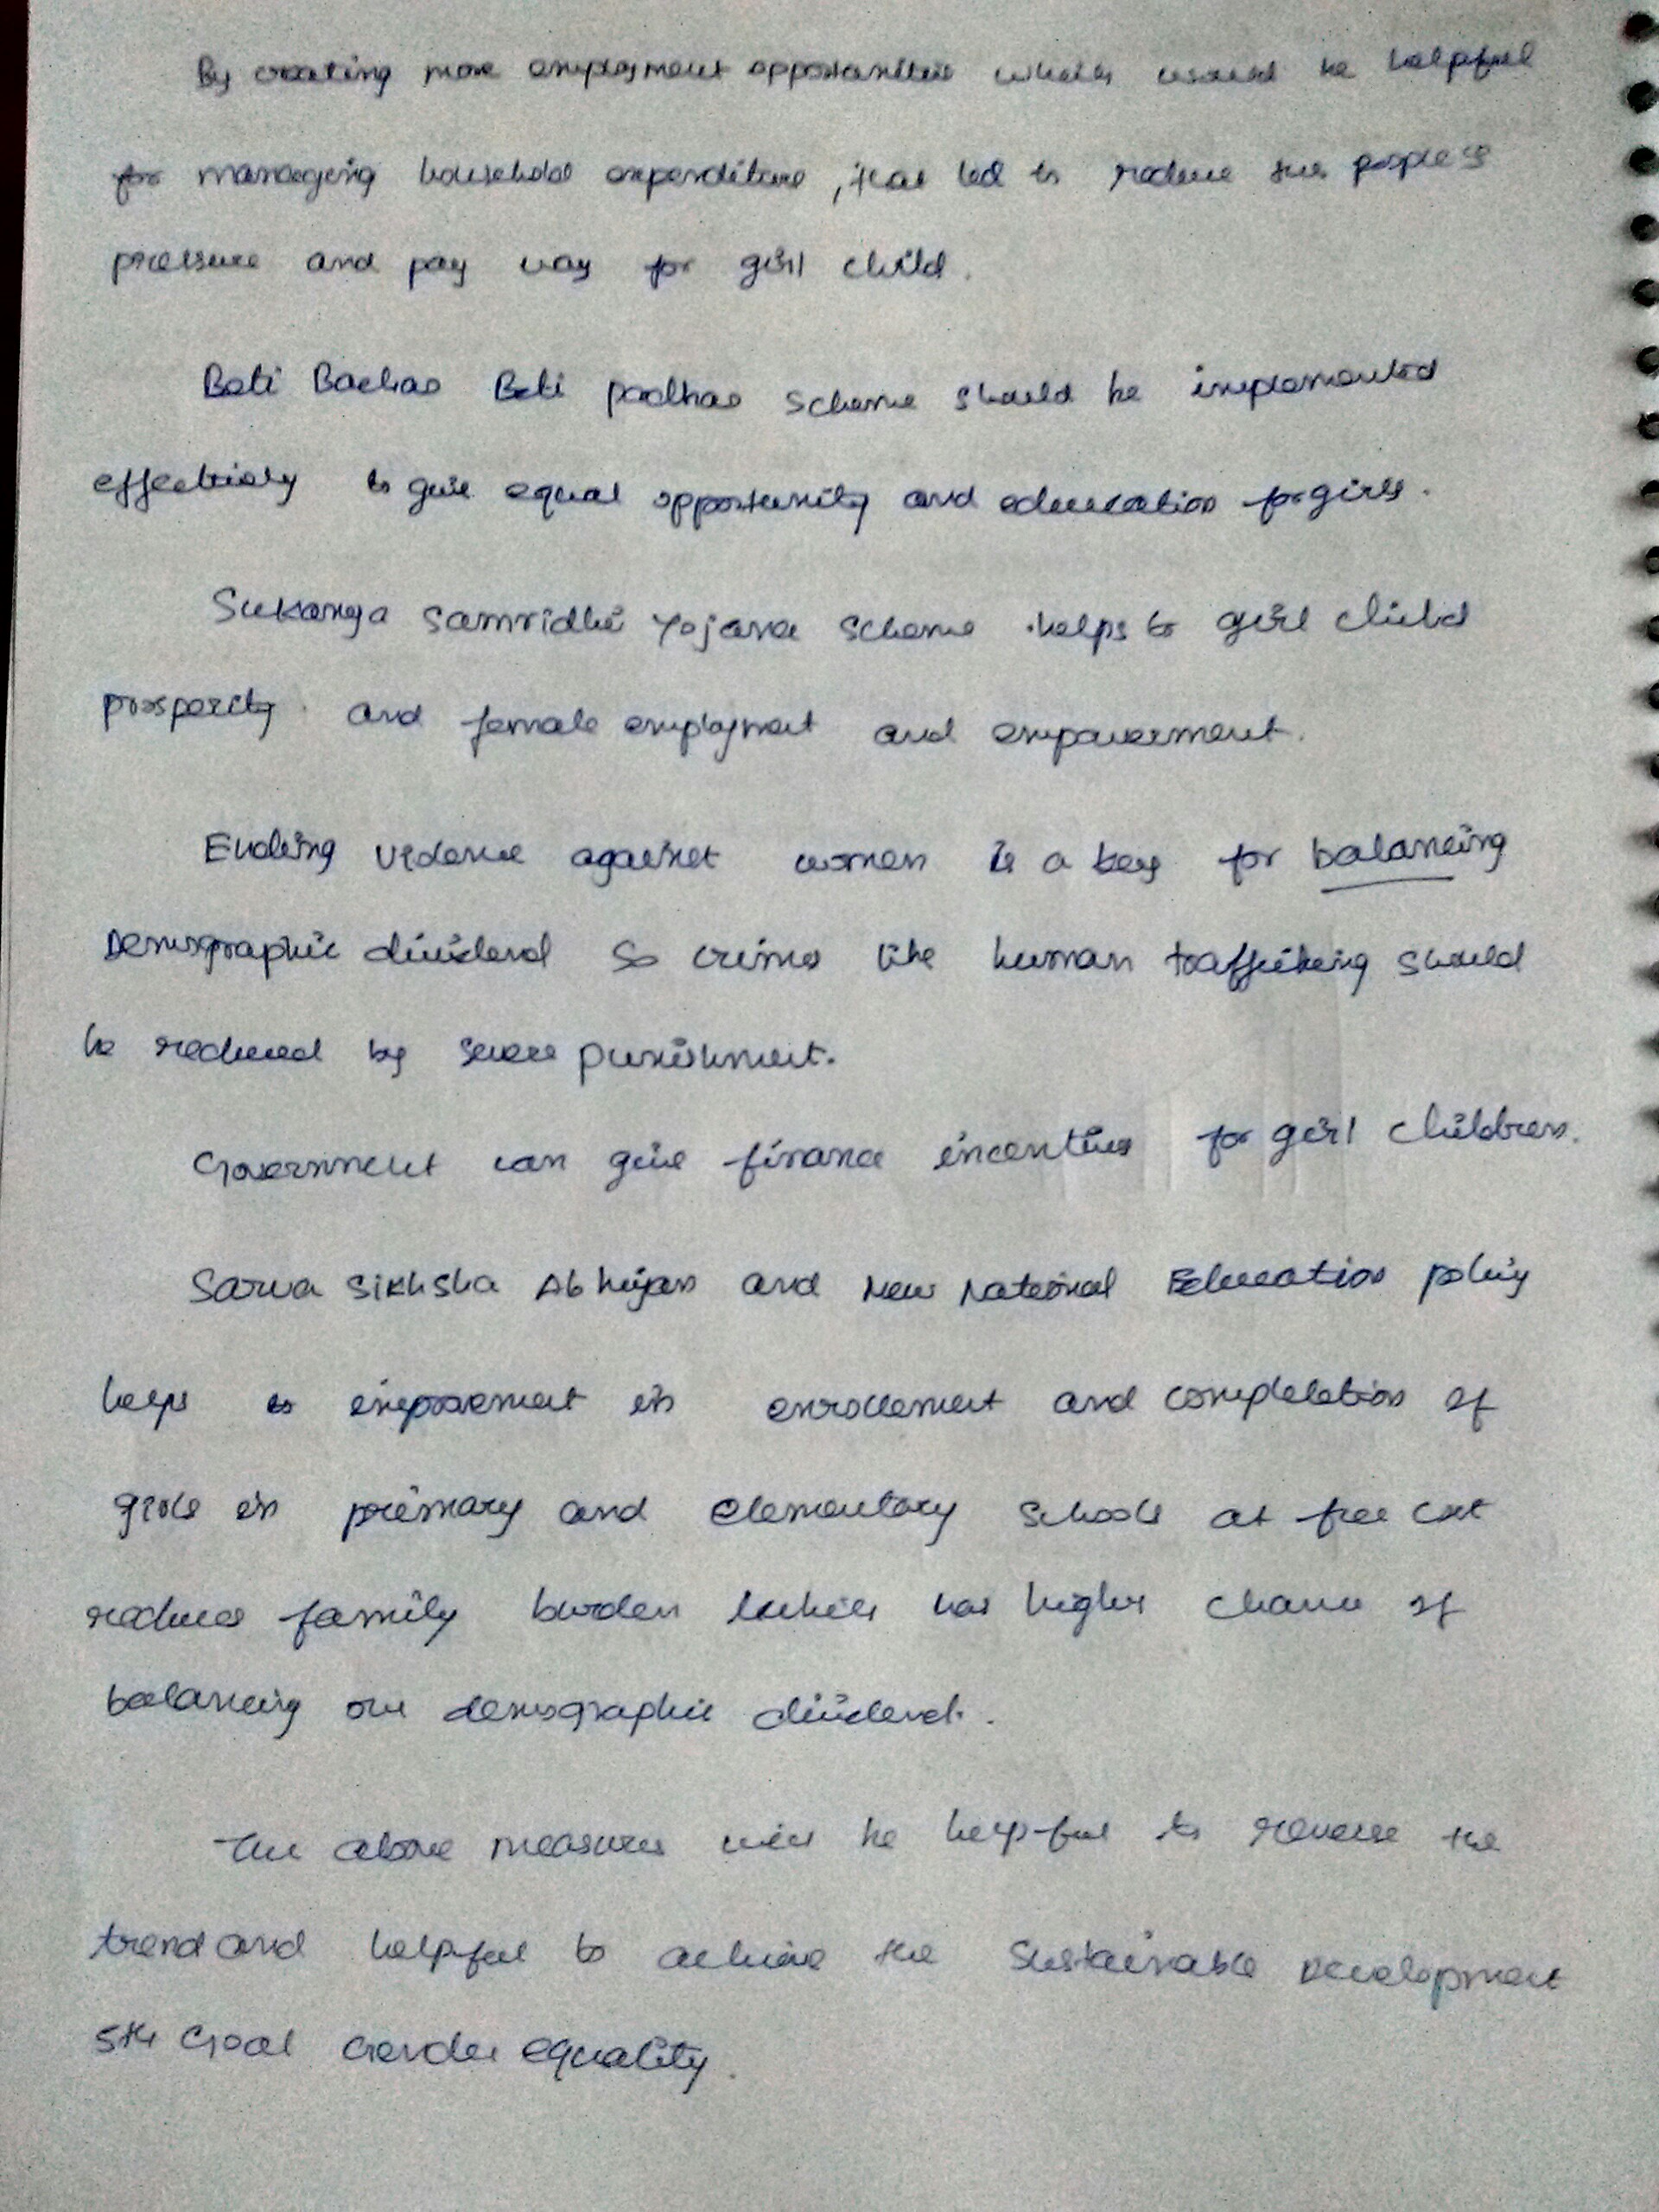 By creating more employment opportunities which would be helpful
for managing household expenditure, that led to reduce the people's
pressure and pay way for girl child.
Beti Bachao Beti padhao scheme should be implemented
effectively to give equal opportunity and education for girls.
Sukanya Samridhi Yojana scheme helps to girl child
prosperity and female employment and empowerment.
Ending violence against women is a key for balancing
Demographic dividend so crimes like human trafficking should
be reduced by severe punishment.
Government can give finance incentives for girl children.
Sarva Sikhsha Abhiyan and New National Education policy
helps to improvement in enrollement and completetion of
girls in primary and elementary schools at free cost
reduces family burden which has higher chance of
balancing our demographic dividend.
The above measures will be helpful to reverse the
trend and helpful to achieve the Sustainable Development
5th Goal Gender equality.